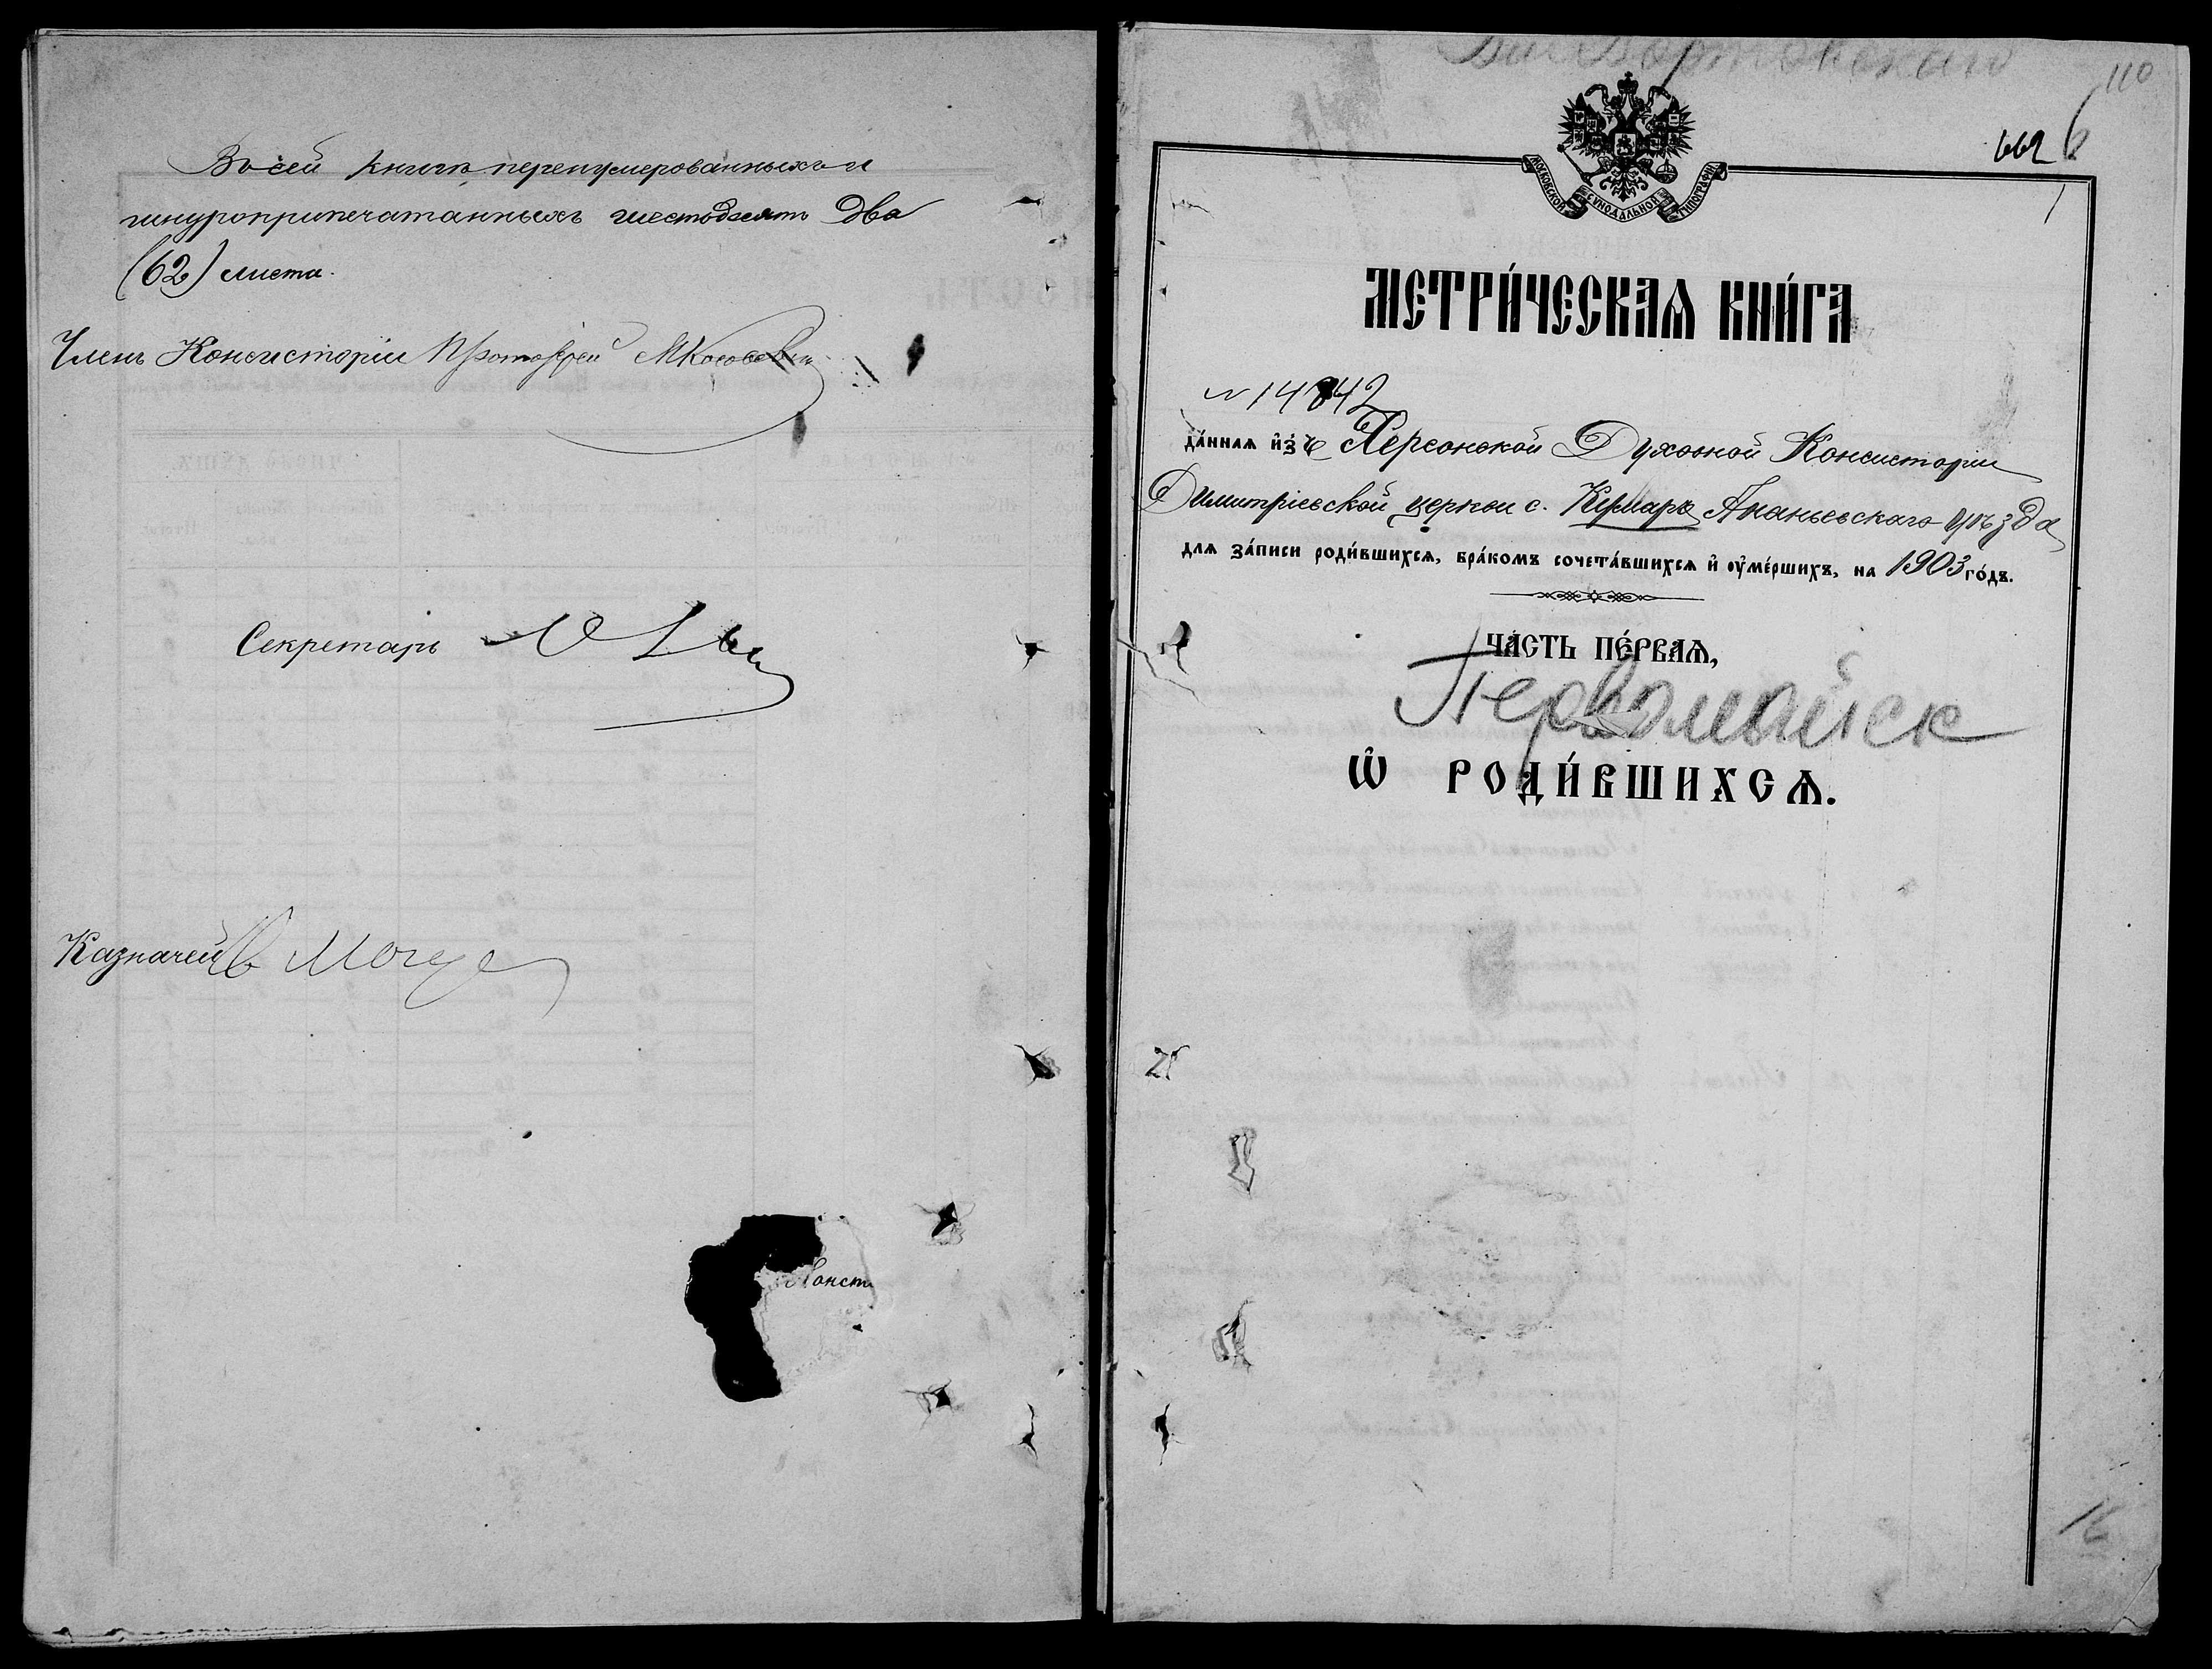 Въ сей книгѣ перенумерованныхъ и
шнуроприпечатанныхъ шестьдесятъ два
(62) листа.
Членъ Консисторіи Протоіерей
Секретарь
Казначей
Конст
110
662
6
1
МОСКОВСКОЙ СѴНОДАЛЬНОЙ ТИПОГРАФІИ
МЕТРИ́ЧЕСКАѦ КНИ́ГА
да́ннаѧ и҆зъ Херсонской Духовной Консисторіи
Димитріевской церкви с. Ананьевскаго уѣзда
для за́писи роди́вшихсѧ, бра́комъ сочета́вшихсѧ и҆ оу҆ме́ршихъ, на 1903 го́дъ.
ЧА́СТЬ ПЕ́РВАѦ,
Первомайск
Ѡ҆ РОДИ́ВШИХСѦ.